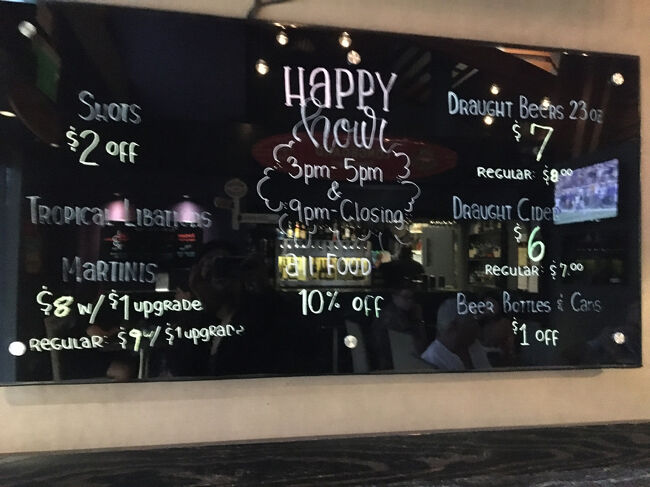 Shots
$2 off
Tropical Libations
&
Martinis
$8 w/ $1 upgrade
Regular: $9 w/ $1 upgrade
Happy
hour
3pm-5pm
&
9pm-Closing
All Food
10% off
Draught Beers 23 oz
$7
Regular: $8.00
Draught Cider
$6
Regular: $7.00
Beer Bottles & Cans
$1 off